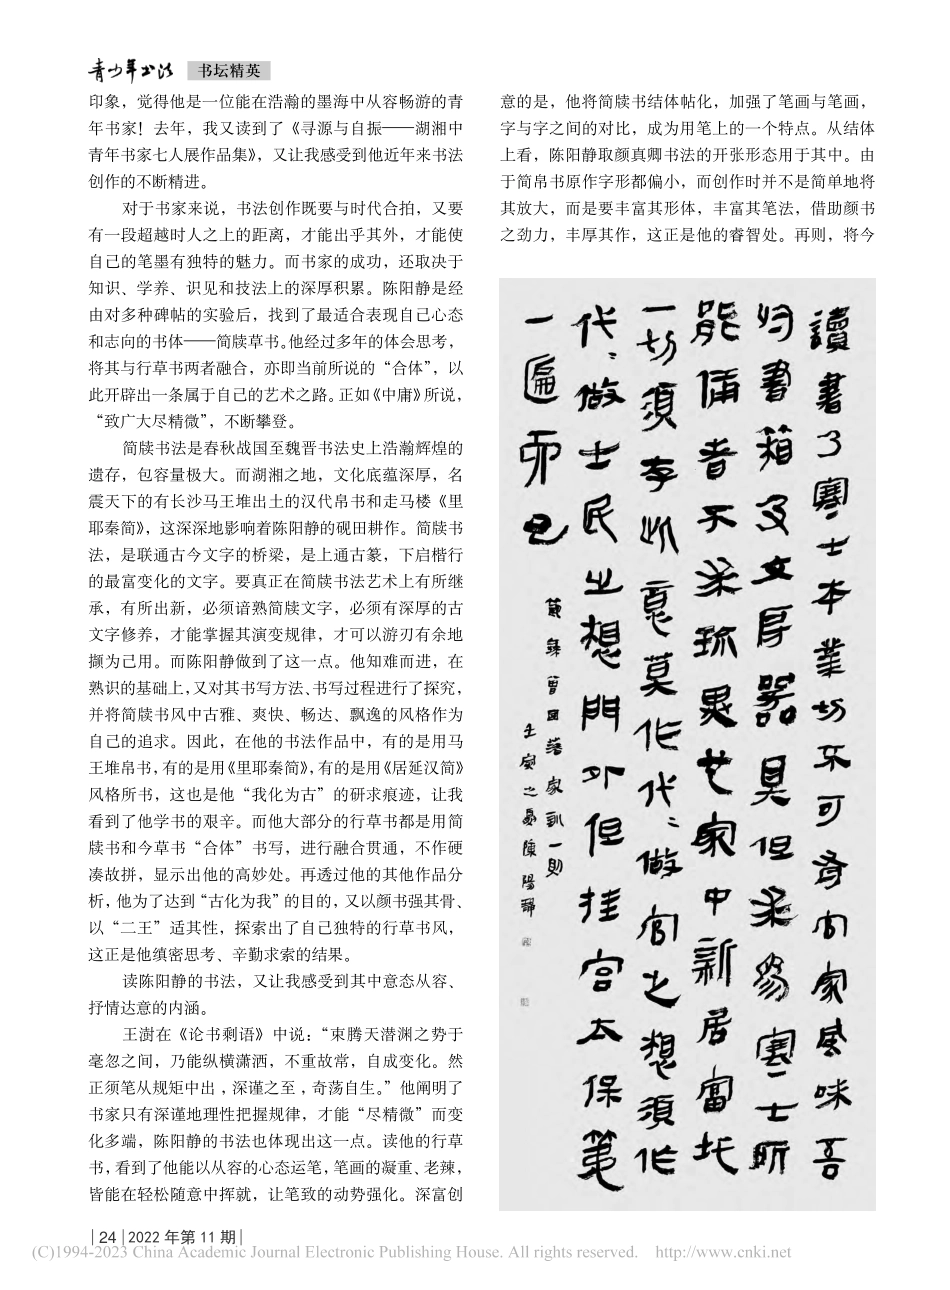 青少年书法 书坛精英
印象，觉得他是一位能在浩瀚的墨海中从容畅游的青
年书家！去年，我又读到了《寻源与自振——湖湘中
青年书家七人展作品集》，又让我感受到他近年来书法
创作的不断精进。
对于书家来说，书法创作既要与时代合拍，又要
有一段超越时人之上的距离，才能出乎其外，才能使
自己的笔墨有独特的魅力。而书家的成功，还取决于
知识、学养、识见和技法上的深厚积累。陈阳静是经
由对多种碑帖的实验后，找到了最适合表现自己心态
和志向的书体——简牍草书。他经过多年的体会思考，
将其与行草书两者融合，亦即当前所说的“合体”，以
此开辟出一条属于自己的艺术之路。正如《中庸》所说，
“致广大尽精微”，不断攀登。
简牍书法是春秋战国至魏晋书法史上浩瀚辉煌的
遗存，包容量极大。而湖湘之地，文化底蕴深厚，名
震天下的有长沙马王堆出土的汉代帛书和走马楼《里
耶秦简》，这深深地影响着陈阳静的砚田耕作。简牍书
法，是联通古今文字的桥梁，是上通古篆，下启楷行
的最富变化的文字。要真正在简牍书法艺术上有所继
承，有所出新，必须谙熟简牍文字，必须有深厚的古
文字修养，才能掌握其演变规律，才可以游刃有余地
撷为己用。而陈阳静做到了这一点。他知难而进，在
熟识的基础上，又对其书写方法、书写过程进行了探究，
并将简牍书风中古雅、爽快、畅达、飘逸的风格作为
自己的追求。因此，在他的书法作品中，有的是用马
王堆帛书，有的是用《里耶秦简》，有的是用《居延汉简》
风格所书，这也是他“我化为古”的研求痕迹，让我
看到了他学书的艰辛。而他大部分的行草书都是用简
牍书和今草书“合体”书写，进行融合贯通，不作硬
凑故拼，显示出他的高妙处。再透过他的其他作品分
析，他为了达到“古化为我”的目的，又以颜书强其骨、
以“二王”适其性，探索出了自己独特的行草书风，
这正是他缜密思考、辛勤求索的结果。
读陈阳静的书法，又让我感受到其中意态从容、
抒情达意的内涵。
王澍在《论书剩语》中说：“束腾天潜渊之势于
毫忽之间，乃能纵横潇洒，不重故常，自成变化。然
正须笔从规矩中出，深谨之至，奇荡自生。”他阐明了
书家只有深谨地理性把握规律，才能“尽精微”而变
化多端，陈阳静的书法也体现出这一点。读他的行草
书，看到了他能以从容的心态运笔，笔画的凝重、老辣，
皆能在轻松随意中挥就，让笔致的动势强化。深富创
意的是，他将简牍书结体帖化，加强了笔画与笔画，
字与字之间的对比，成为用笔上的一个特点。从结体
上看，陈阳静取颜真卿书法的开张形态用于其中。由
于简帛书原作字形都偏小，而创作时并不是简单地将
其放大，而是要丰富其形体，丰富其笔法，借助颜书
之劲力，丰厚其作，这正是他的睿智处。再则，将今
讀書乃寒士本業切不可有官家風味吾
於書箱及文房器具但求為寒士所
能備者不求珎異也家中新居富圫
一切須存此意莫作代〻做官之想須作
代〻做士民之想門外但挂宮太保第
一匾而已
節錄曾国藩家訓一則
壬寅之夏陳陽静
|24|2022 年第 11 期|
(C)1994-2023 China Academic Journal Electronic Publishing House. All rights reserved. http://www.cnki.net